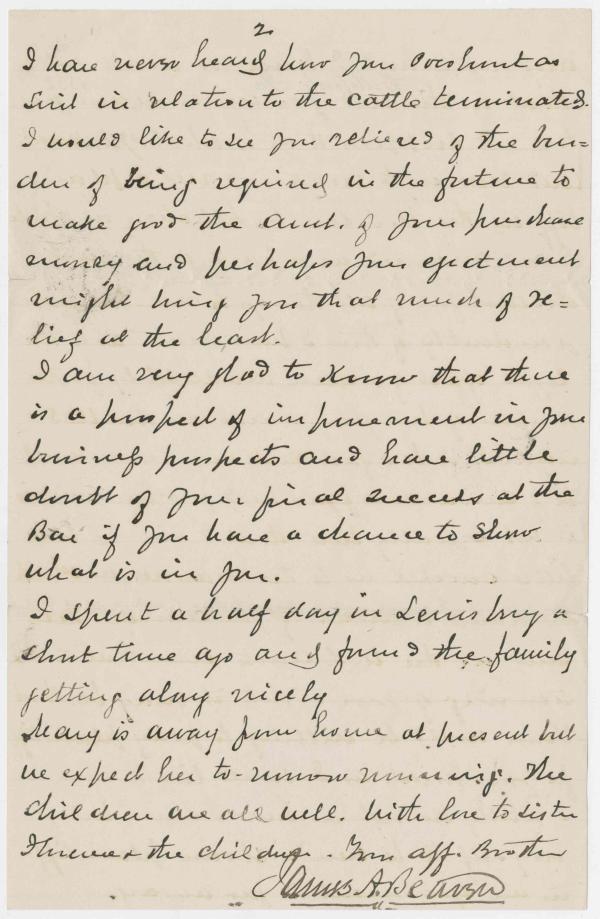 2
I have never heard how your Pocahontas
suit in relation to the cattle terminated.
I would like to see you relieved of the bur=
den of being required in the future to
make good the amt. of your purchase
money and perhaps your ejectment
might bring you that much of re=
lief at the least.
I am very glad to know that there
is a prospect of improvement in your
business prospects and have little
doubt of your final success at the
Bar if you have a chance to show
what is in you.
I spent a half day in Lewisburg a
short time ago and found the family
getting along nicely
Mary is away from home at present but
we expect her to-morrow morning. The
children are all well. With love to sister
& the children. Your aff. Brother
James A. Beaver